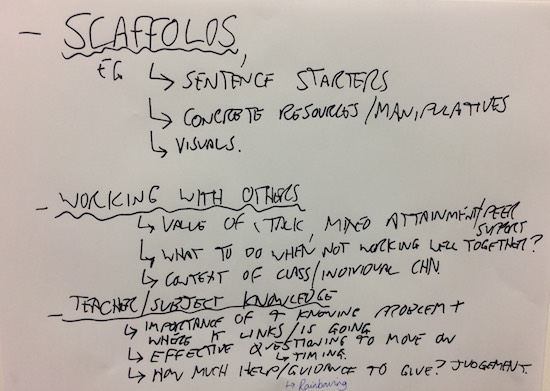 - SCAFFOLDS,
EG ↳ SENTENCE STARTERS
↳ CONCRETE RESOURCES/MANIPULATIVES
↳ VISUALS.
- WORKING WITH OTHERS
↳ VALUE OF TALK, MIXED ATTAINMENT/PEER SUPPORT
↳ WHAT TO DO WHEN NOT WORKING WELL TOGETHER?
↳ CONTEXT OF CLASS/INDIVIDUAL CHN.
- TEACHER/SUBJECT KNOWLEDGE
↳ IMPORTANCE OF T KNOWING PROBLEM +
WHERE IT LINKS/IS GOING
↳ EFFECTIVE QUESTIONING TO MOVE ON
↳ TIMING.
↳ HOW MUCH HELP/GUIDANCE TO GIVE? JUDGEMENT.
↳ Rainbowing